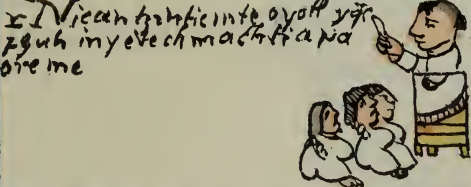 Nican tzintic in teoyotl yqc
in yetechmachtia pa
dreme